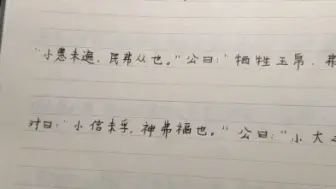 “小惠未遍，民弗从也。”公曰：“牺牲玉帛，弗
对曰：“小信未孚，神弗福也。”公曰：“小大之